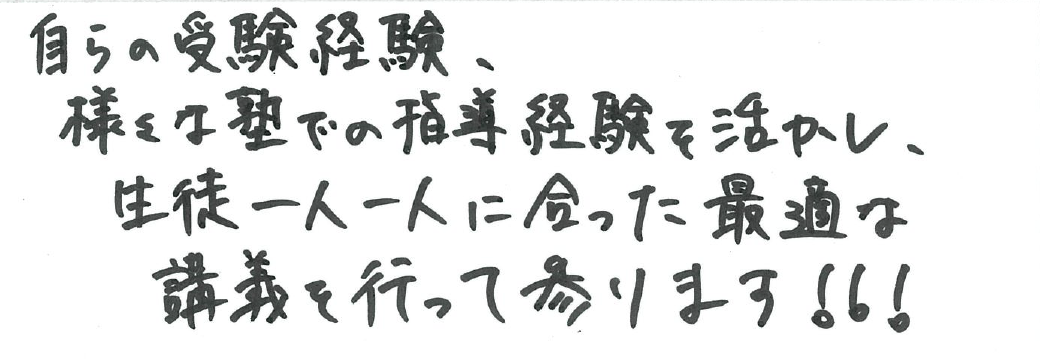 自らの受験経験、
様々な塾での指導経験を活かし、
生徒一人一人に合った最適な
講義を行って参ります!!!